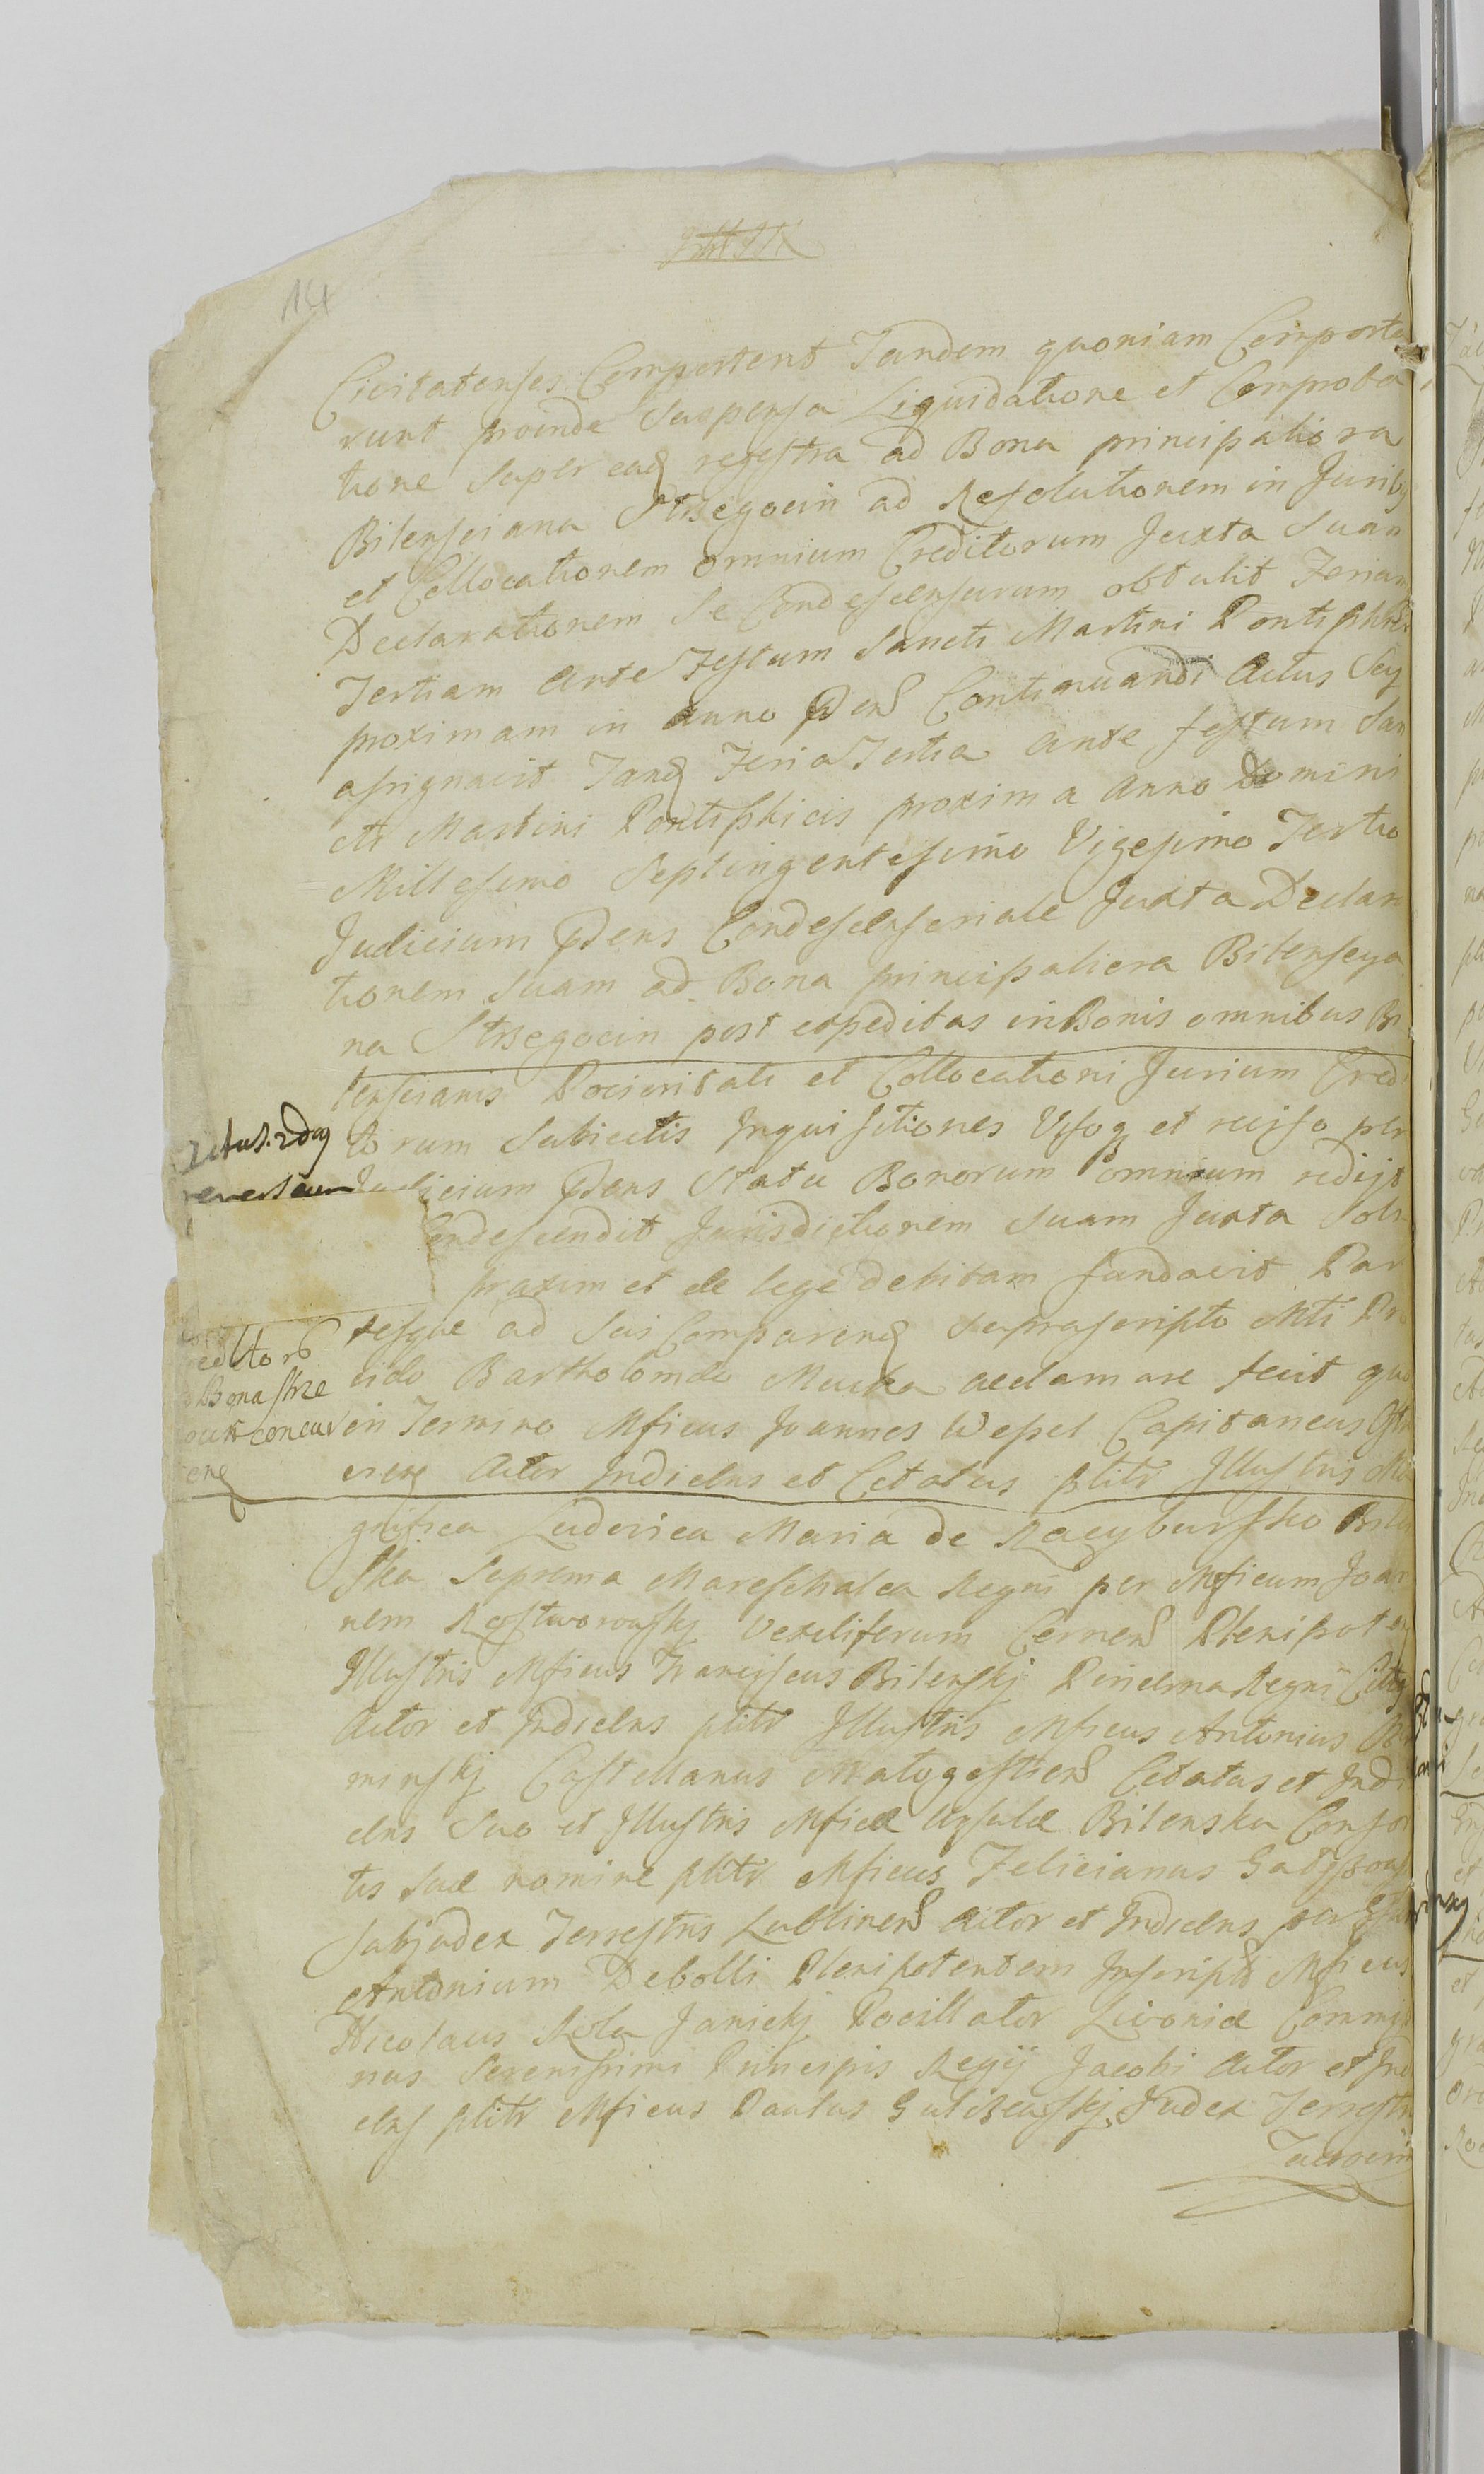 Civitatenses Comportent Tandem quoniam Comporta
runt proinde Suspensa Liquidatione et Comproba
tione super eaq regestra ad Bona principaliora
Bilensciana Strzegocin ad Resolutionem in Juriby
et Collocationem omnium Creditorum Juxta Suam
Declarationem Se Condescensurum obtulit Feriam
Tertiam ante Festum Sancti Martini Pontiphicis
proximam in anno Continuandi Actus
assignavit Tanq Feria Tertia ante festum San
cti Martini Pontiphicis proxima Anno Domini
Millesimo Septingentesimo Vigesimo Tertio
Judicium Pdens Condescensoriale Juxta Declara
tionem Suam ad Bona principaliora Bilenscya
na Strzegocin post expeditas in Bonis omnibus Bi
lenscianis Pocioritati et Collocationi Jurium Credi
torum Subiectis Inquisitiones Usoq et reviso per
Judicium Pdens Statu Bonorum omnium redijt
Condescendit Jurisdictionem Suam Juxta Soli
praxim et de lege debitam fundavit Par
tesque ad Sui Comparenq Suprascripto Mti Pro
vido Bartholomeo Mucka acclamare fecit quo
in Termino Mficus Joannes Wessel Capitaneus Ostro
Actor Indicens et Citatus plitr Illustris Ma
gnifica Ludovica Maria de Bilin
ska Suprema Mareschalca Regni per Mficum Joan
nem Rostworowskj Vexiliferum Cernens Plenipoten
Illustris Mficus Franciscus Bilenskj Pincerna Regni
Actor et Indicens plitr Illustris Mficus Antonius
minskj Castellanus Citatus et Indi
cens Suo et Illustris Mficae Ursulae Bilenska Consor
tis Suae nomine plitr Mficus Felicianus
Subjudex Terrestris Lublinens Actor et Indicens per
Antonium Debolli Plenipotentem Inscripti Mficus
Nicolaus Rola Janickj Pocillator Livoniae
nus Serenissimi Principis Regij Jacobi Actor et Indi
cens plitr Mficus Paulus Judex Terrestris
Actus. 2dq
reversum
editorb
Bona Strze
concur
enq